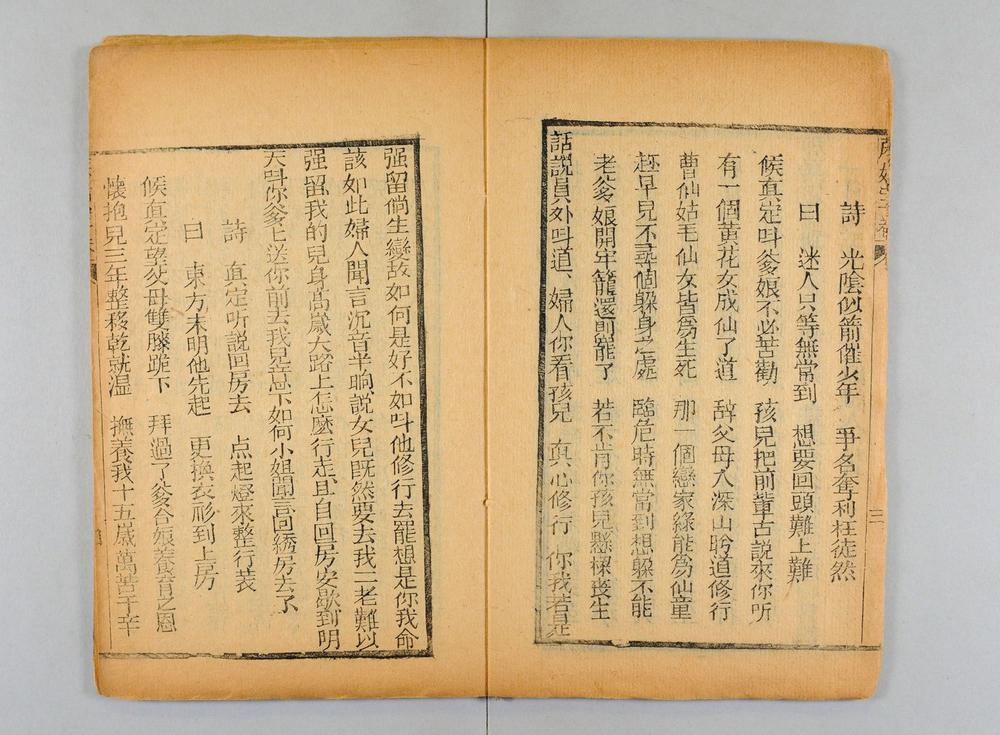 詩 光陰似箭催少年 爭名奪利枉徒然
曰 迷人只等無常到 想要回頭難上難
候真定呌爹娘不必苦勸 孩兒把前輩古說來你听
有一個黃花女成仙了道 辞父母入深山聆道修行
曹仙姑毛仙女皆爲生死 那一個戀家緣能爲仙童
趂早兒不尋個躲身之處 臨危時無當到想躲不能
老爹娘開牢籠還則罷了 若不肯你孩兒懸樑喪生
話說員外呌道、婦人你看孩兒 真心修行 你我若是
三
强留倘生變故如何是好不如呌他修行去罷想是你我命
該如此婦人聞言沉音半晌說女兒既然要去我二老難以
强留我的兒身高歲大路上怎麼行走且自回房安歇到明
天呌你爹上送你前去我兒意下如何小姐聞言回綉房去了、
詩 真定听說回房去 点起燈來整行裝
曰 東方未明他先起 更換衣衫到上房
候真定望父母雙膝跪下 拜過了爹合娘養育之恩
懷抱兒三年整移乾就温 撫養我十五歲萬苦千辛